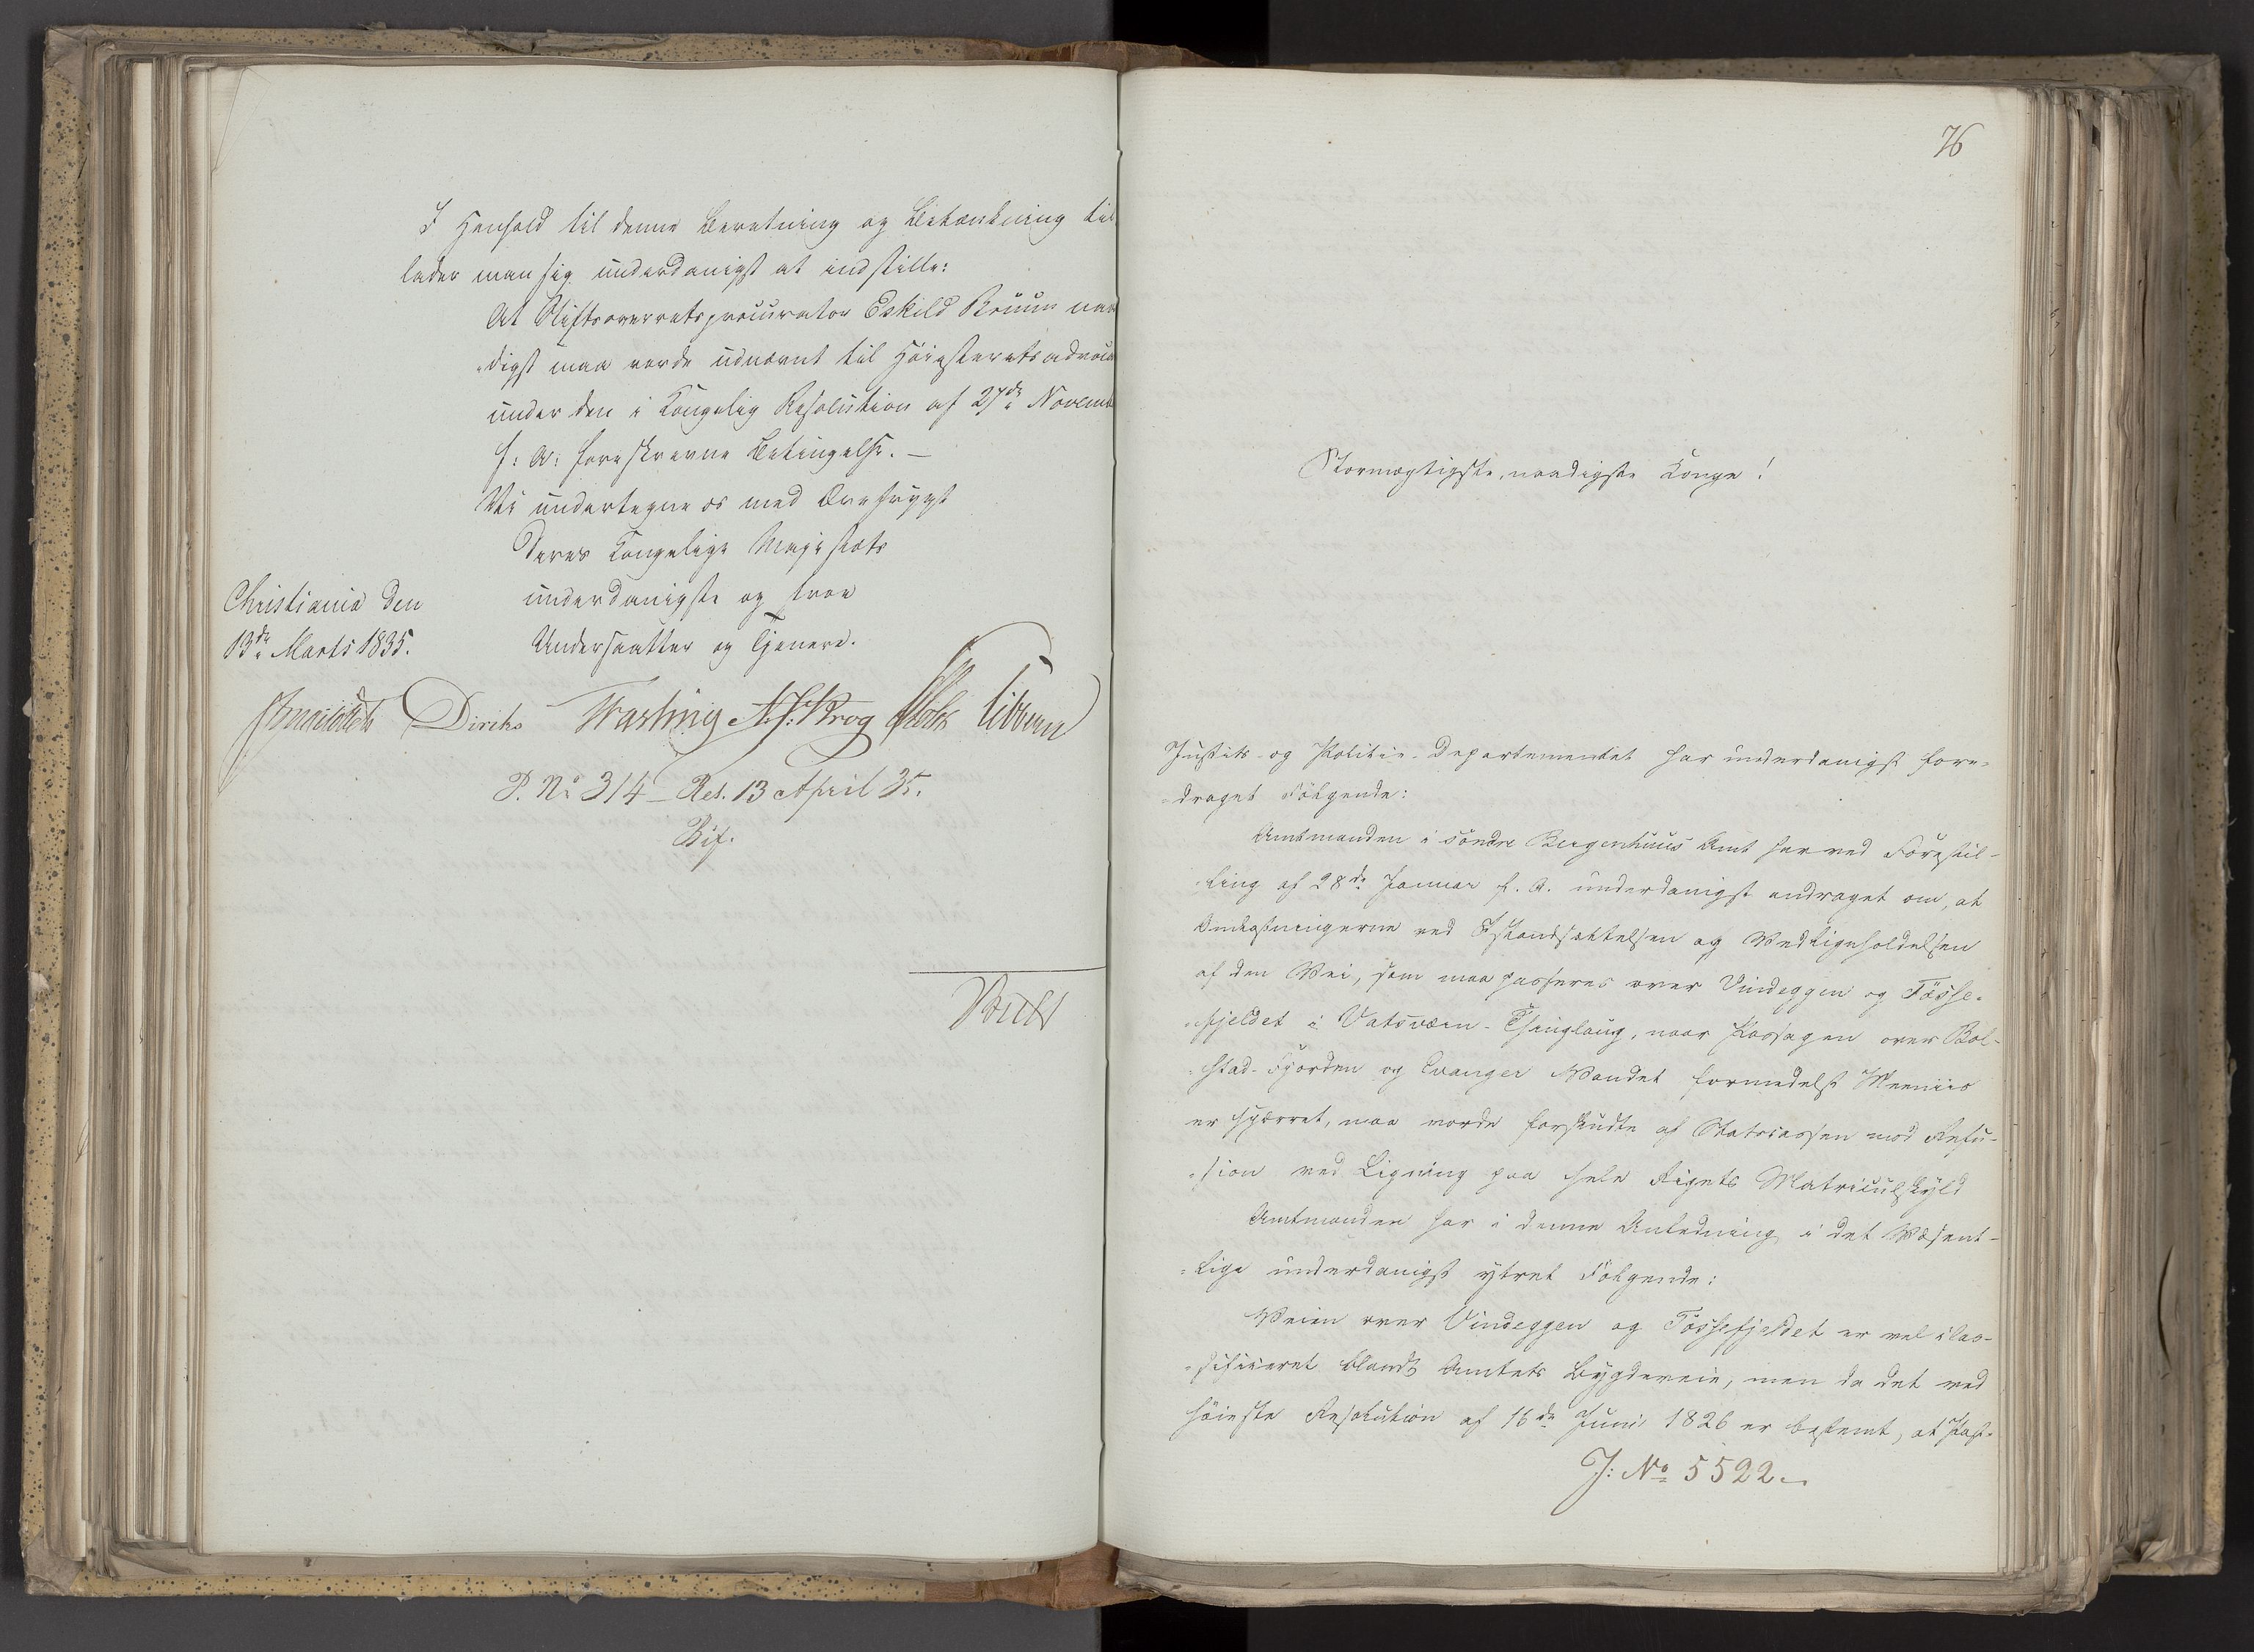 I Henhold til denne Beretning og Betænkning til
lader man sig underdanigst at indstille:
At Stiftsoverretsprocurator Eskild Bruun naa
„digst maa vorde udnævnt til Höiesteretsadvoca
under den i Kongelig Resolution af 27de Novemb
f: A: foreskrevne Betingelse. —
Vi undertegne os med Ærefrygt
Deres Kongelige Majestæts
underdanigste og troe
Undersaatter og Tjenere.
Christiania den
13de Marts 1835.
Diriks Fasting Krog Holst Vibe
P. No 314 – Res. 13 April 35.
Bif.
76
Stormægtigste, naadigste Konge!
Justits- og Politie-Departementet har underdanigst fore-
„draget Fölgende:
Amtmanden i söndre Bergenhuus Amt har ved Forestil-
„ling af 28de Januar f. A. underdanigst andraget om, at
Omkostningerne ved Istandsættelsen og Vedligeholdelsen
af den Vei, som maa passeres over Vindeggen og Tösse-
„fjeldet i Vatsværn-Thinglaug, naar Passagen over Bol-
„stad-Fjorden og Evanger Vandet formedelst Meeniis
er spærret, maa vorde forskudte af Statscassen mod Refu-
„sion ved Ligning paa hele Rigets Matriculskyld
Amtmanden har i denne Anledning i det Væsent-
„lige underdanigst ytret Fölgende:
Veien over Vindeggen og Tössefjeldet er vel clas-
„sificeret blandt Amtets Bygdeveie, men da det ved
höieste Resolution af 16de Juni 1826 er bestemt, at Post-
J: No 5522.